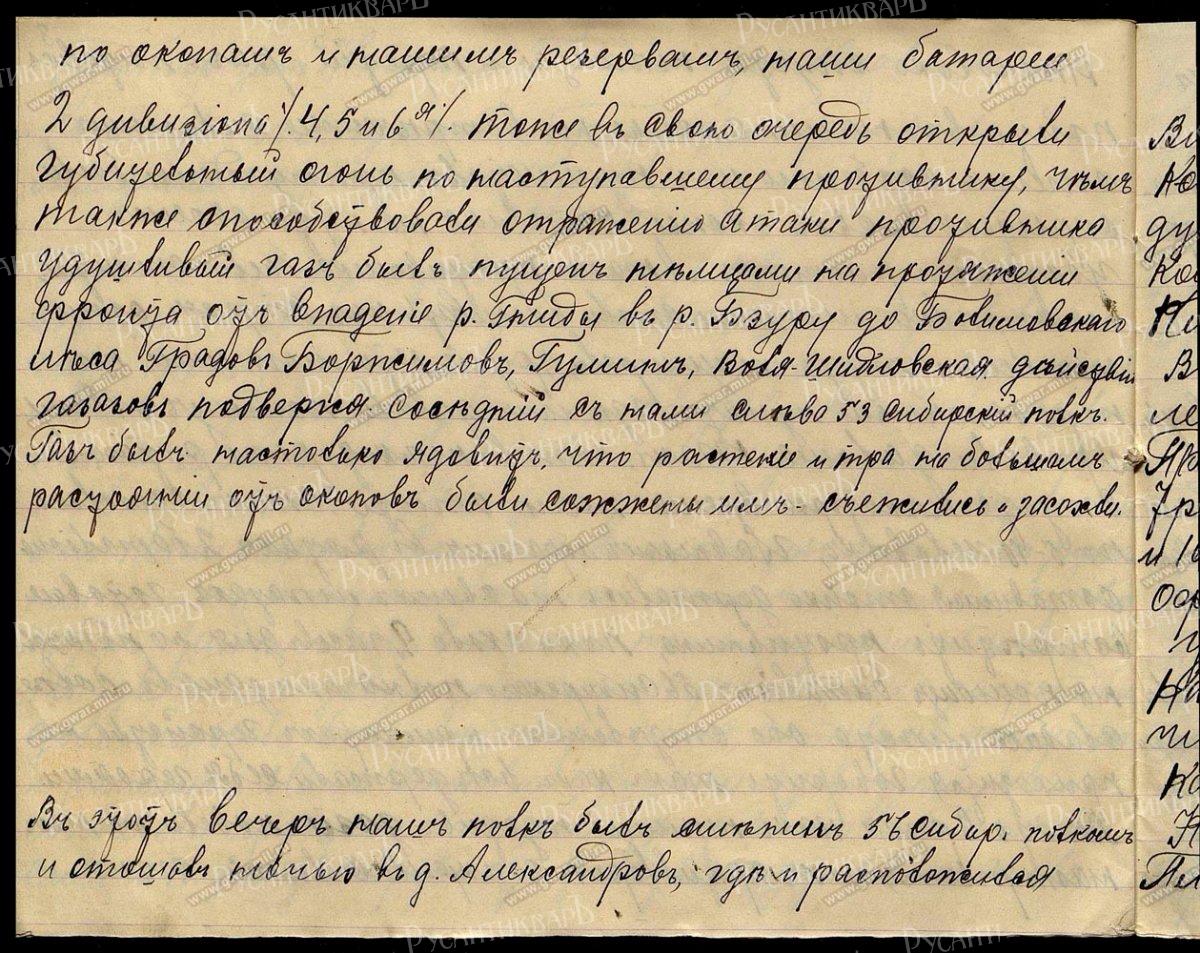 по окопамъ и нашимъ резервамъ, наши батареи
2 дивизіона /. 4, 5 и 6 ая /. тоже въ свою очередь открыли
губительный огонь по наступавшему противнику, чѣмъ
также способствовали отраженію атаки противника
удушливый газъ былъ пущенъ нѣмцами на протяженіи
фронта отъ впаденіе р. Пниды въ р. Бзуру до Болимовскаго
лѣса Градовъ Боржимовъ, Гуминъ, Воля-Шидловская. дѣйствію
газаговъ подвергся. сосѣдній съ нами слѣва 53 сибирскій полкъ.
Газъ былъ настолько ядовитъ, что растеніе и тра на большомъ
растояніи отъ окоповъ были сожжены имъ - съежились и засохли.
Въ этотъ вечеръ нашъ полкъ былъ смѣненъ 56 сибир. полкомъ
и отошолъ ночью въ д. Александровъ, гдѣ и расположился
Ви
ду
Ко
В
ле
Пр
7 р
и 1
Оф
На
чи
Ко